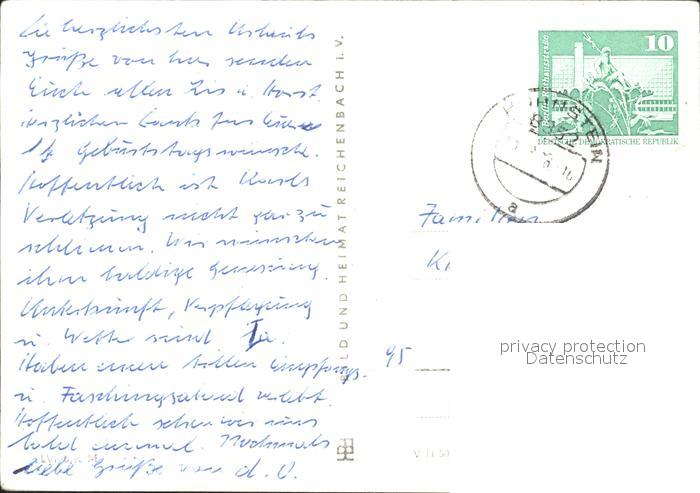 Die herzlichsten Urlaubs
Grüße von hier senden
Euch allen Lis u. Horst.
Herzlichen Dank für Eure
lb Geburtstagswünsche.
Hoffentlich ist Karls
Verletzung nicht gar zu
schlimm. Wir wünschen
ihm baldige Genesung.
Unterkunft, Verpflegung
u. Wetter sind Ia.
Haben einen tollen Empfangs-
u. Faschingsabend erlebt.
Hoffentlich sehen wir uns
bald einmal. Nochmals
liebe Grüße von d. O.
BILD UND HEIMAT REICHENBACH I. V.
V 11 50
10
Berlin, Rathausstraße
DEUTSCHE DEMOKRATISCHE REPUBLIK
HOHNSTEIN
8352
a
Familien
95
privacy protection
Datenschutz